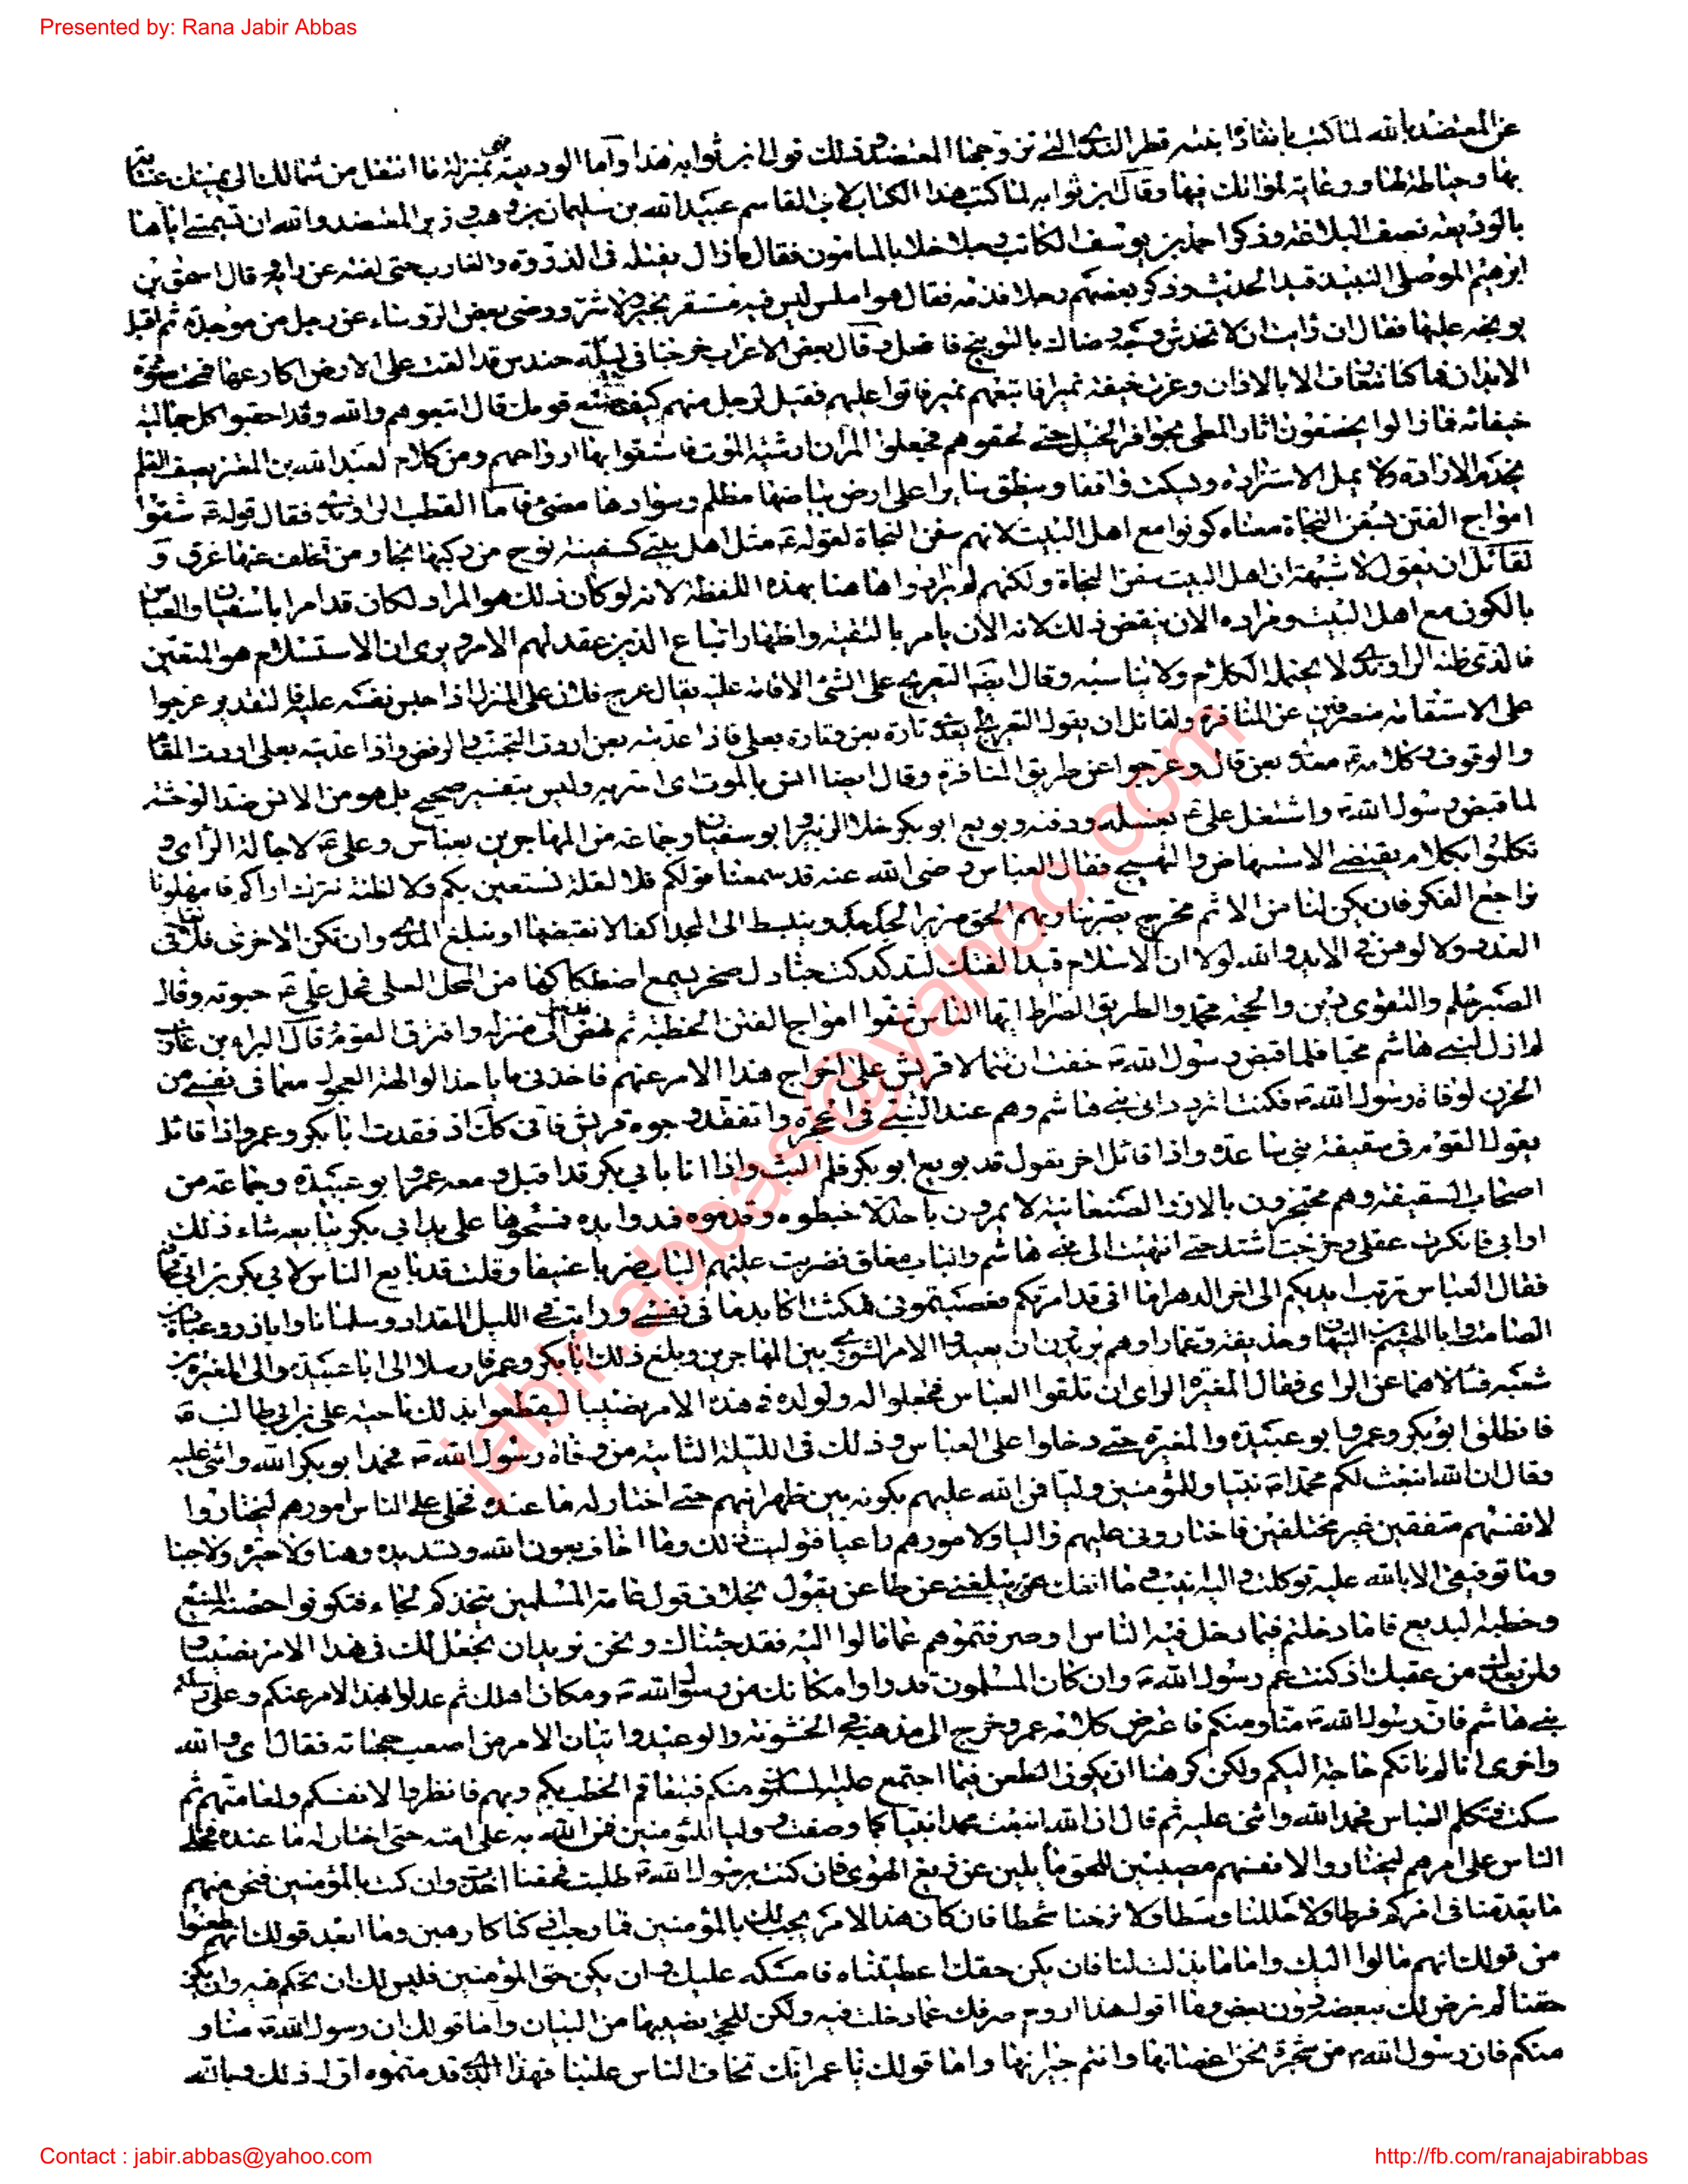 Presented by: Rana Jabir Abbas
عن المعتضد بالله لما كتب بانفاذ ابنته قطر الندى التي تزوجها المعتضد وذلك قول ابن ثوابه هذا واما الوديعة فهي بمنزلة ما انتقل من شمالك الى يمينك عناية
بها وحياطة لها ورعاية لمواتك فيها وقال ابن ثوابه لما كتب هذا الكتاب لابي القاسم عبيد الله بن سليمان بن وهب وزير المعتضد والله ان تسميتي اياها
بالوديعة نصف البلاغة وذكر احمد بن يوسف الكاتب رجلا خلا بالمامون فقال ما زال يفتله في الذروة والغارب حتى لفته عن رايه قال اسحق بن
ابرهيم الموصلي النبيذ قيد الحديث وذكر بعضهم رجلا فذمه فقال هو املس ليس فيه مستقر لخير ولا شر ورضي بعض الرؤساء عن رجل من موجدة ثم اقبل
يوبخه عليها فقال ان رايت ان لا تخدش وجه رضاك بالتوبيخ فافعل وقال بعض الاعراب خرجنا في ليلة حندس قد القت على الارض اكارعها فمحت صورة
الابدان فما كنا نتعارف الا بالاذان وغزت حنيفة نميرا فاتبعتهم نمير فاتوا عليهم فقيل لرجل منهم كيف صنع قومك قال اتبعوهم والله وقد احقبوا كل جمالية
خيفانة فما زالوا يخصفون اثار المطي بحوافر الخيل حتى لحقوهم فجعلوا المران ارشية الموت فاستقوا بها ارواحهم ومن كلام لعبد الله بن المعتز يصف القلم
يخدم الارادة ولا يمل الاستزادة ويسكت واقفا وينطق سائرا على ارض بياضها مظلم وسوادها مضئ فاما القطب الراوندي فقال قوله ع شقوا
امواج الفتن بسفن النجاة معناه كونوا مع اهل البيت لانهم سفن النجاة لقوله ع مثل اهل بيتي كسفينة نوح من ركبها نجا ومن تخلف عنها غرق و
لقائل ان يقول لا شبهة ان اهل البيت سفن النجاة ولكنهم لم يرادوا هاهنا بهذه اللفظة لانه لو كان ذلك هو المراد لكان قد امر ابا سفيان والعباس
بالكون مع اهل البيت ومراده الان ينقض ذلك لانه الان يامر بالتقية واظهار اتباع الذين عقد لهم الامر ويرى ان الاستسلام هو المتعين
فالذي ظنه الراوندي لا يحتمله الكلام ولا يناسبه وقال ايضا التعريج على الشئ الاقامة عليه يقال عرج فلان على المنزل اذا حبس نفسه عليه فالتقدير عرجوا
على الاستقامة منصرفين عن المنافرة ولقائل ان يقول التعريج يعدى تارة بعن وتارة بعلى فاذا عديته بعن اردت التجنب والرفض واذا عديته بعلى اردت المقام
والوقوف وكلامه ع معدى بعن قال وعرجوا عن طريق المنافرة وقال ايضا انس بالموت اى اسر به وليس بتفسير صحيح بل هو من الانس ضد الوحشة
لما قبض رسول الله ص واشتغل علي ع بغسله ودفنه وبويع ابو بكر خلا الزبير وابو سفيان وجماعة من المهاجرين بعباس وعلي ع لاجالة الراى و
تكلموا بكلام يقتضى الاستنهاض والتهييج فقال العباس رضي الله عنه قد سمعنا قولكم فلا لقلة نستعين بكم ولا لظنة نترك اراءكم فامهلونا
نراجع الفكر فان يكن لنا من الاثم مخرج يصر بنا وبهم الحق صرير الجدجد ونبسط الى المجد اكفا لا نقبضها او نبلغ المدى وان تكن الاخرى فلا لقلة في
العدد ولا لوهن في الايد والله لولا ان الاسلام قيد الفتك لتدكدكت جنادل صخر يسمع اصطكاكها من المحل العلي فحل علي ع حبوته وقال
الصبر حلم والتقوى دين والحجة محمد والطريق الصراط ايها الناس شقوا امواج الفتن الخطبة ثم نهض فدخل الى منزله وافترق القوم وقال البراء بن عازب
لم ازل لبني هاشم محبا فلما قبض رسول الله ص خفت ان تتمالا قريش على اخراج هذا الامر عنهم فاخذني ما ياخذ الوالهة العجول مع ما في نفسي من
الحزن لوفاة رسول الله ص فكنت اتردد الى بني هاشم وهم عند النبي في الحجرة واتفقد وجوه قريش فاني كذلك اذ فقدت ابا بكر وعمر واذا قائل
يقول القوم في سقيفة بني ساعدة واذا قائل اخر يقول قد بويع ابو بكر فلم البث واذا انا بابي بكر قد اقبل ومعه عمر وابو عبيدة وجماعة من
اصحاب السقيفة وهم محتجزون بالازر الصنعانية لا يمرون باحد الا خبطوه وقدموه فمدوا يده فمسحوها على يد ابي بكر يبايعه شاء ذلك
او ابى فانكرت عقلي وخرجت اشتد حتى انتهيت الى بني هاشم والباب مغلق فضربت عليهم الباب ضربا عنيفا وقلت قد بايع الناس لابي بكر بن ابي قحافة
فقال العباس تربت ايديكم الى اخر الدهر اما اني قد امرتكم فعصيتموني فمكثت اكابد ما في نفسي ورايت في الليل المقداد وسلمان وابا ذر وعبادة بن
الصامت وابا الهيثم بن التيهان وحذيفة وعمارا وهم يريدون ان يعيدوا الامر شورى بين المهاجرين وبلغ ذلك ابا بكر وعمر فارسلا الى ابي عبيدة والى المغيرة بن
شعبة فسالاهما عن الراى فقال المغيرة الراى ان تلقوا العباس فتجعلوا له ولولده في هذه الامر نصيبا ليقطعوا بذلك ناحية علي بن ابي طالب ع
فانطلق ابو بكر وعمر وابو عبيدة والمغيرة حتى دخلوا على العباس وذلك في الليلة الثانية من وفاة رسول الله ص فحمد ابو بكر الله واثنى عليه
وقال ان الله ابتعث لكم محمدا ص نبيا وللمؤمنين وليا فمن الله عليهم بكونه بين ظهرانيهم حتى اختار له ما عنده فخلى على الناس امورهم ليختاروا
لانفسهم متفقين غير مختلفين فاختاروني عليهم واليا ولامورهم راعيا فتوليت ذلك وما اخاف بعون الله وتسديده وهنا ولا حيرة ولا جبنا
وما توفيقي الا بالله عليه توكلت واليه انيب وما انفك يبلغني عن طاعن يقول بخلاف قول عامة المسلمين يتخذكم لجاء فتكونوا حصنه المنيع
وخطبه البديع فاما دخلتم فيما دخل فيه الناس او صرفتموهم عما مالوا اليه فقد جئناك ونحن نريد ان نجعل لك في هذا الامر نصيبا
ولمن بعدك من عقبك اذ كنت عم رسول الله ص وان كان المسلمون قد راوا مكانك من رسول الله ص ومكان اهلك ثم عدلوا بهذا الامر عنكم وعلى رسلكم
بني هاشم فان رسول الله ص منا ومنكم فاعترض كلامه عمر وخرج الى مذهبه في الخشونة والوعيد واتيان الامر من اصعب جهاته فقال اى والله
واخرى انا لم ناتكم حاجة اليكم ولكن كرهنا ان يكون الطعن فيما اجتمع عليه المسلمون منكم فيتفاقم الخطب بكم وبهم فانظروا لانفسكم ولعامتهم ثم
سكت فتكلم العباس فحمد الله واثنى عليه ثم قال ان الله ابتعث محمدا نبيا كما وصفت ووليا للمؤمنين فمن الله به على امته حتى اختار له ما عنده فخلى
الناس على امرهم ليختاروا لانفسهم مصيبين للحق مائلين عن زيغ الهوى فان كنت برسول الله ص طلبت فحقنا اخذت وان كنت بالمؤمنين فنحن منهم
ما تقدمنا في امركم فرطا ولا حللنا وسطا ولا نزحنا شحطا فان كان هذا الامر يجب لك بالمؤمنين فما وجب اذ كنا كارهين وما ابعد قولك انهم طعنوا
من قولك انهم مالوا اليك واما ما بذلت لنا فان يكن حقك اعطيتناه فامسكه عليك وان يكن حق المؤمنين فليس لك ان تحكم فيه وان يكن
حقنا لم نرض لك ببعضه دون بعض وما اقول هذا اروم صرفك عما دخلت فيه ولكن للحجة نصيبها من البيان واما قولك ان رسول الله ص منا و
منكم فان رسول الله ص من شجرة نحن اغصانها وانتم جيرانها واما قولك يا عمر انك تخاف الناس علينا فهذا الذي قدمتموه اول ذلك وبالله
jabir.abbas@yahoo.com
Contact : jabir.abbas@yahoo.com
http://fb.com/ranajabirabbas